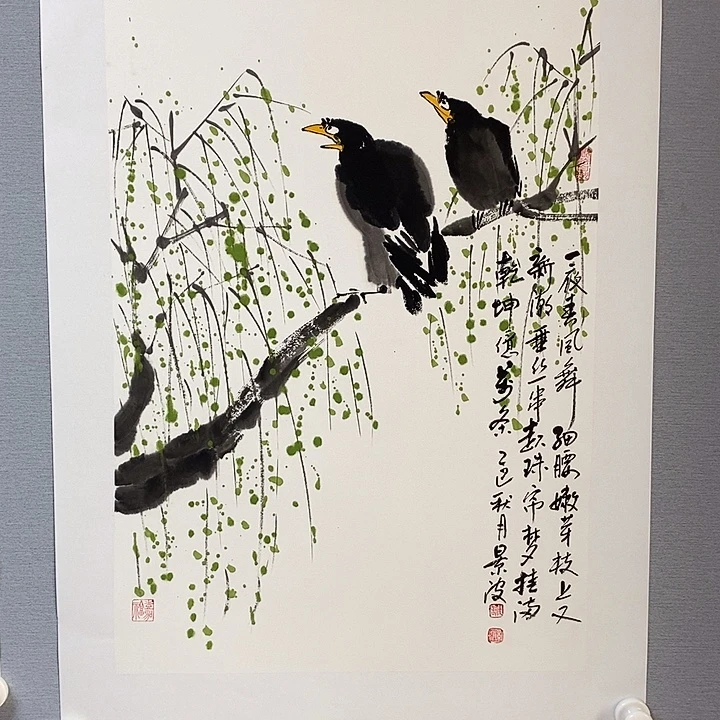 一夜春风舞细腰嫩芽枝上又
新潮垂丝一串赵珠帘梦挂满
乾坤億万条 秋月景波